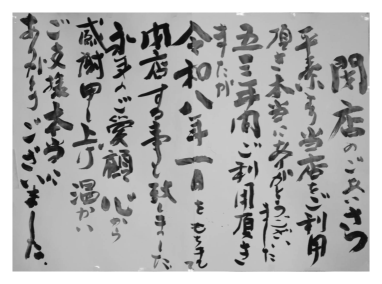 閉店のごあいさつ
平素より当店をご利用
頂き本当にありがとうございました
五三年間ご利用頂き
ましたが
令和八年一月をもちまして
閉店する事と致しました
永年のご愛顧心から
感謝申し上げ温かい
ご支援本当に
ありがとうございました。